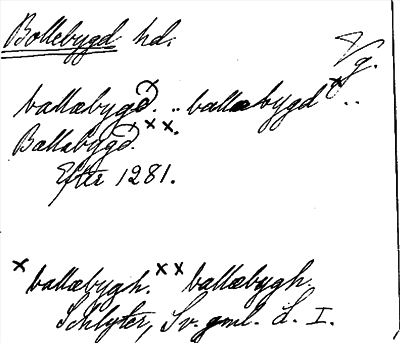 Bollebygd hd.
Vg.
ballæbygd. .. ballæbygd x ..
Ballabygd. x x.
Efter 1281.
x ballæbygh. x x ballæbygh.
Schlyter, Sv. gml. L. I.